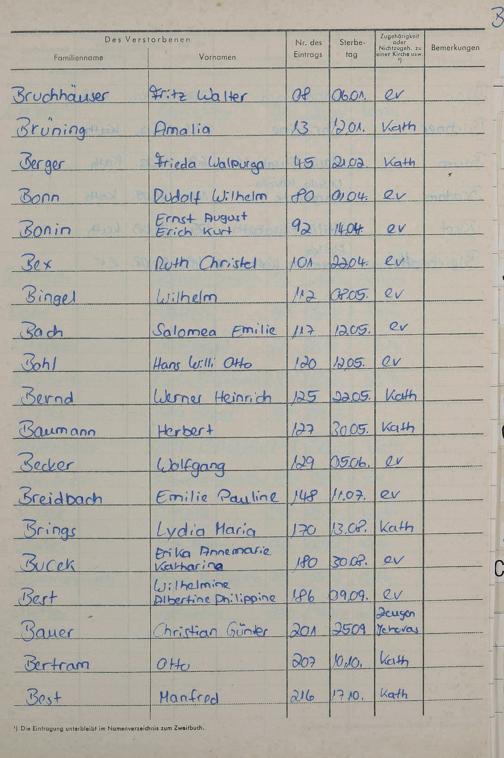 B
Des Verstorbenen
Familienname Vornamen Nr. des Eintrags Sterbe-tag Zugehörigkeit oder Nichtzugeh. zu einer Kirche usw. *) Bemerkungen
Bruchhäuser Fritz Walter 08 06.01. ev
Brüning Amalia 13 12.01. Kath
Berger Frieda Walpurga 45 21.02. Kath
Bonn Rudolf Wilhelm 80 01.04. ev
Bonin Ernst August Erich Kurt 92 14.04. ev
Bex Ruth Christel 101 22.04. ev
Bingel Wilhelm 112 08.05. ev
Bach Salomea Emilie 117 12.05. ev
Bohl Hans Willi Otto 120 12.05. ev
Bernd Werner Heinrich 125 22.05. Kath
Baumann Herbert 127 30.05. Kath
Becker Wolfgang 129 05.06. ev
Breidbach Emilie Pauline 148 11.07. ev
Brings Lydia Maria 170 13.08. Kath
Bucek Erika Annemarie Katharina 180 30.08. ev
Best Wilhelmine Albertine Philippine 186 09.09. ev
Bauer Christian Günter 201 25.09 Zeugen Jehovas
Bertram Otto 207 10.10. Kath
Best Manfred 216 17.10. Kath
*) Die Eintragung unterbleibt im Namenverzeichnis zum Zweitbuch.